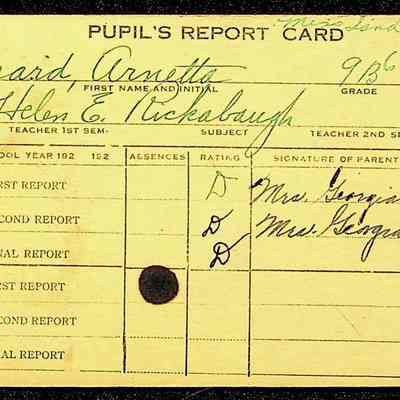 Miss
PUPIL'S REPORT CARD
Arnetta 9B6
FIRST NAME AND INITIAL GRADE
Helen E. Rickabaugh
TEACHER 1ST SEM. SUBJECT TEACHER 2ND SE
OOL YEAR 192 192 ABSENCES RATING SIGNATURE OF PARENT
RST REPORT D Mrs. Georgia
COND REPORT D Mrs. Georgia
NAL REPORT D
RST REPORT
COND REPORT
AL REPORT